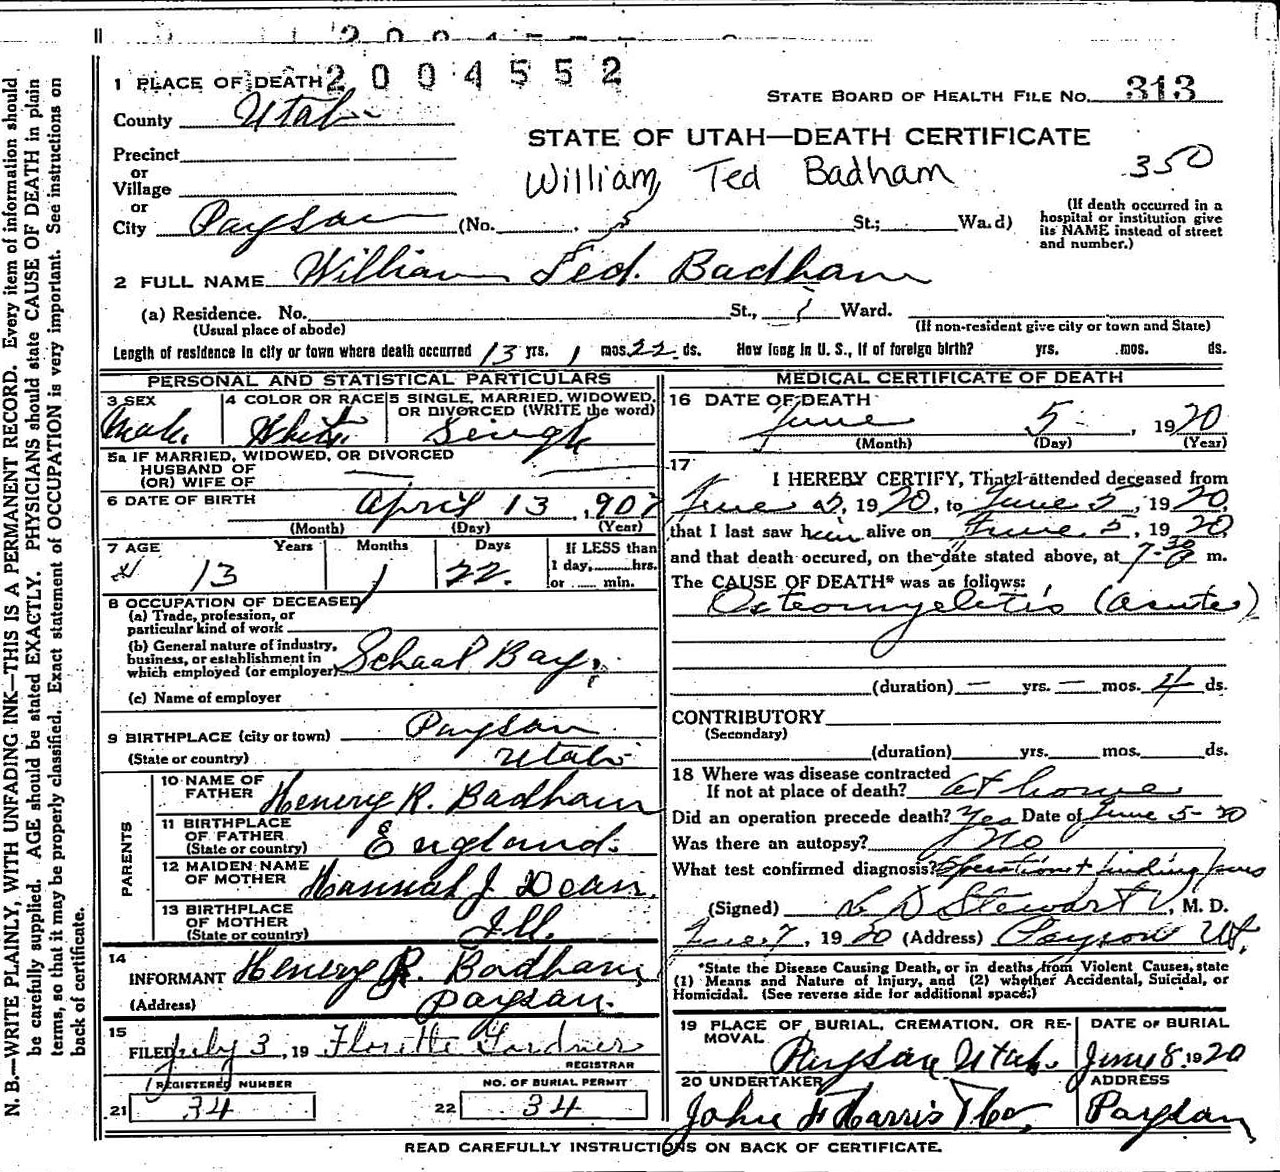 2004552
1 PLACE OF DEATH
STATE BOARD OF HEALTH FILE NO. 313
County Utah
STATE OF UTAH—DEATH CERTIFICATE
350
Precinct
or
Village
or
William Ted Badham
City Payson (No. St.; Ward)
(If death occurred in a
hospital or institution give
its NAME instead of street
and number.)
2 FULL NAME William Ted. Badham
(a) Residence. No. St., Ward.
(Usual place of abode)
(If non-resident give city or town and State)
Length of residence in city or town where death occurred 13 yrs. 1 mos. 22 ds. How long in U. S., if of foreign birth? yrs. mos. ds.
PERSONAL AND STATISTICAL PARTICULARS
3 SEX
Male
4 COLOR OR RACE
White
5 SINGLE, MARRIED, WIDOWED,
OR DIVORCED (WRITE the word)
Single
5a IF MARRIED, WIDOWED, OR DIVORCED
HUSBAND OF
(OR) WIFE OF
6 DATE OF BIRTH April 13, 1907
(Month) (Day) (Year)
7 AGE Years Months Days
13 1 22.
If LESS than
1 day, hrs.
or min.
8 OCCUPATION OF DECEASED
(a) Trade, profession, or
particular kind of work
(b) General nature of industry,
business, or establishment in
which employed (or employer) School Boy
(c) Name of employer
9 BIRTHPLACE (city or town) Payson
(State or country) Utah
PARENTS
10 NAME OF
FATHER Henery R. Badham
11 BIRTHPLACE
OF FATHER
(State or country) England.
12 MAIDEN NAME
OF MOTHER Hannah J. Dean.
13 BIRTHPLACE
OF MOTHER
(State or country) Ill.
14
INFORMANT Henery R. Badham
(Address) Payson.
15
FILED July 3, 19 Florette Gardner
REGISTRAR
REGISTERED NUMBER
21 34
NO. OF BURIAL PERMIT
22 34
MEDICAL CERTIFICATE OF DEATH
16 DATE OF DEATH
June 5, 1920
(Month) (Day) (Year)
17
I HEREBY CERTIFY, That I attended deceased from
June 5, 1920, to June 5, 1920,
that I last saw him alive on June 5, 1920
and that death occured, on the date stated above, at 7-30 m.
The CAUSE OF DEATH* was as follows:
Osteomyelitis (acute)
(duration) — yrs. — mos. 4 ds.
CONTRIBUTORY
(Secondary)
(duration) yrs. mos. ds.
18 Where was disease contracted
If not at place of death? at home
Did an operation precede death? Yes Date of June 5-20
Was there an autopsy? No
What test confirmed diagnosis? Operation + finding
(Signed) L D Stewart, M. D.
June 7, 1920 (Address) Payson Ut.
*State the Disease Causing Death, or in deaths from Violent Causes, state
(1) Means and Nature of Injury, and (2) whether Accidental, Suicidal, or
Homicidal. (See reverse side for additional space.)
19 PLACE OF BURIAL, CREMATION, OR RE-
MOVAL
Payson Utah.
DATE OF BURIAL
June 8 1920
20 UNDERTAKER
John F Harris & Co,
ADDRESS
Payson
READ CAREFULLY INSTRUCTIONS ON BACK OF CERTIFICATE.
N. B.—WRITE PLAINLY, WITH UNFADING INK—THIS IS A PERMANENT RECORD. Every item of information should
be carefully supplied. AGE should be stated EXACTLY. PHYSICIANS should state CAUSE OF DEATH in plain
terms, so that it may be properly classified. Exact statement of OCCUPATION is very important. See instructions on
back of certificate.